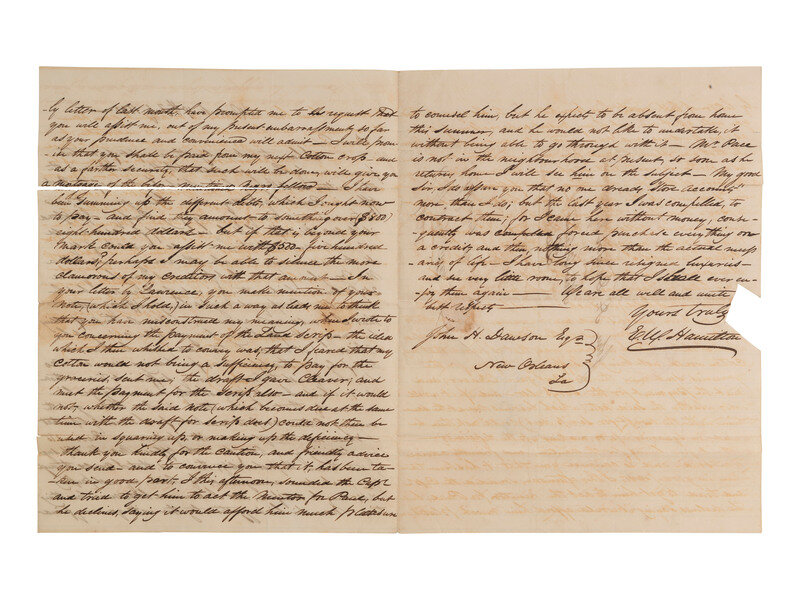 by letter of last month, have prompted me to the request that
you will assist me, out of my present embarrassments, so far
as your prudence and convenience will admit — I will prom
ise that you shall be paid from my next Cotton crop and
as a farther security, that such will be done, will give you
a mortgage of the — I have
been summing up the different debts, which I ought now
to pay — and find they amount to something over $800
eight hundred dollars — but if that is beyond your
mark could you assist me with $500 five hundred
dollars? perhaps I may be able to silence the more
clamorous of my creditors with that amount — In
your letter by Lawrence, you make mention of your
note, (which I hold,) in such a way as leads me to think
that you have misconstrued my meaning, when I wrote to
you concerning the payment of the Land Scrip — the idea
which I then wished to convey was, that I feared that my
Cotton would not bring a sufficiency, to pay for the
groceries sent me; the draft I gave Cleaver; and
meet the payment for the Scrip also — and if it would
not, whether the said note (which becomes due at the same
time with the draft for scrip does) could not then be
used in squaring up, or making up the deficiency —
thank you kindly for the caution, and friendly advice
you send — and to convince you that it has been ta-
ken in good part, I this afternoon, sounded the Capt
and tried to get him to act the for but
he declines, saying it would afford him much pleasure
to counsel him, but he expects to be absent from home
this summer, and he would not like to undertake it
without being able to go through with it — Mr. Pace
is not in the neighbourhood at present, so soon as he
returns home I will see him on the subject — My good
Sir, I do assure you that no one dreads "Store Accounts"
more than I do; but the last year I was compelled, to
contract them; for I came here without money, conse-
quently was compelled forced purchase everything on
a credit, and then nothing more than the actual necess
aries of life — I have long since resigned luxuries —
and see very little room, to hope that I shall ever en-
joy them again — We are all well and unite
best
Yours truly
Hamilton
John H. Dawson Esqr
New Orleans
La